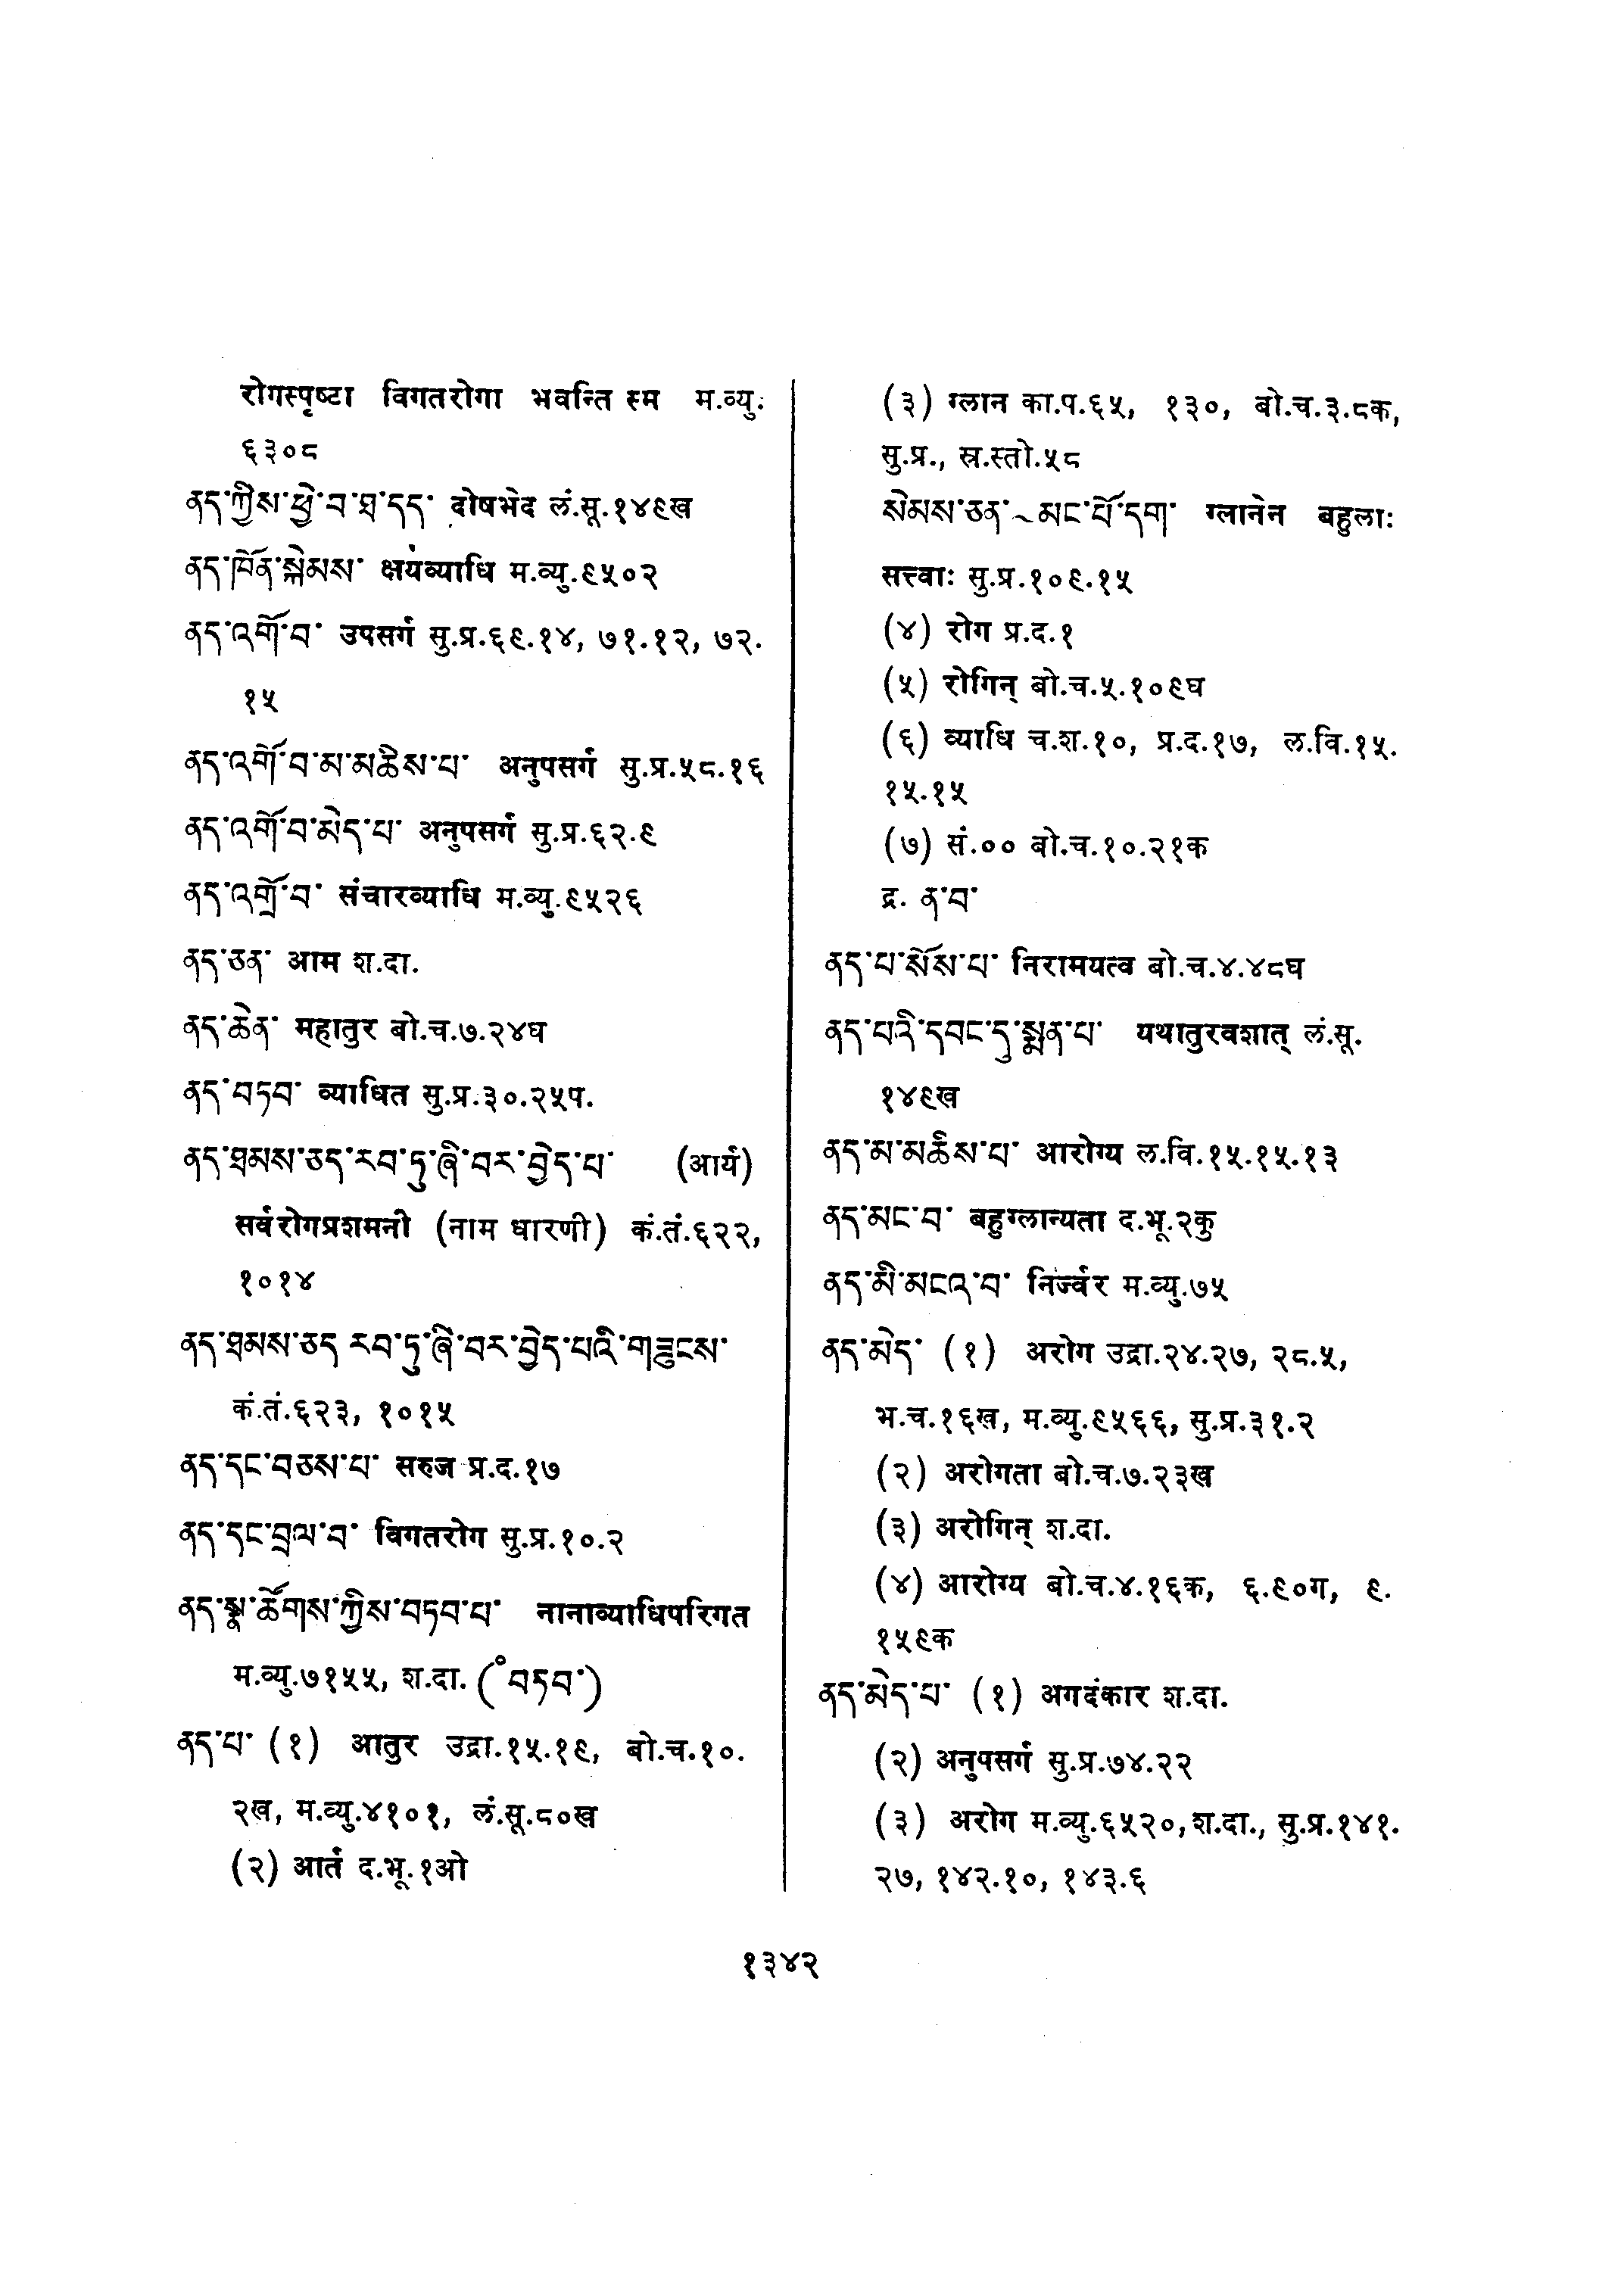 रोगस्पृष्टा विगतरोगा भवन्ति स्म म.व्यु.
६३०८
ནད་ཀྱིས་ཕྱེ་བ་ཐ་དད་ दोषभेद लं.सू.१४९ख
ནད་ཁོན་སྐེམས་ क्षयव्याधि म.व्यु.९५०२
ནད་འགོ་བ་ उपसर्ग सु.प्र.६९.१४, ७१.१२, ७२.
१५
ནད་འགོ་བ་མ་མཆིས་པ་ अनुपसर्ग सु.प्र.५८.१६
ནད་འགོ་བ་མེད་པ་ अनुपसर्ग सु.प्र.६२.९
ནད་འགྲོ་བ་ संचारव्याधि म.व्यु.९५२६
ནད་ཅན་ आम श.दा.
ནད་ཆེན་ महातुर बो.च.७.२४घ
ནད་བཏབ་ व्याधित सु.प्र.३०.२५प.
ནད་ཐམས་ཅད་རབ་ཏུ་ཞི་བར་བྱེད་པ་ (आर्य)
सर्वरोगप्रशमनी (नाम धारणी) कं.तं.६२२,
१०१४
ནད་ཐམས་ཅད རབ་ཏུ་ཞི་བར་བྱེད་པའི་གཟུངས་
कं.तं.६२३, १०१५
ནད་དང་བཅས་པ་ सरुज प्र.द.१७
ནད་དང་བྲལ་བ་ विगतरोग सु.प्र.१०.२
ནད་སྣ་ཚོགས་ཀྱིས་བཏབ་པ་ नानाव्याधिपरिगत
म.व्यु.७१५५, श.दा. (°བཏབ་)
ནད་པ་ (१) आतुर उद्रा.१५.१९, बो.च.१०.
२ख, म.व्यु.४१०१, लं.सू.८०ख
(२) आर्त द.भू.१ओ
(३) ग्लान का.प.६५, १३०, बो.च.३.८क,
सु.प्र., स्र.स्तो.५८
སེམས་ཅན་~མང་པོ་དག་ ग्लानेन बहुलाः
सत्त्वाः सु.प्र.१०९.१५
(४) रोग प्र.द.१
(५) रोगिन् बो.च.५.१०९घ
(६) व्याधि च.श.१०, प्र.द.१७, ल.वि.१५.
१५.१५
(७) सं.०० बो.च.१०.२१क
द्र. ན་བ་
ནད་པ་སོས་པ་ निरामयत्व बो.च.४.४८घ
ནད་པའི་དབང་དུ་སྨན་པ་ यथातुरवशात् लं.सू.
१४९ख
ནད་མ་མཆིས་པ་ आरोग्य ल.वि.१५.१५.१३
ནད་མང་བ་ बहुग्लान्यता द.भू.२कु
ནད་མི་མངའ་བ་ निर्ज्वर म.व्यु.७५
ནད་མེད་ (१) अरोग उद्रा.२४.२७, २८.५,
भ.च.१६ख, म.व्यु.९५६६, सु.प्र.३१.२
(२) अरोगता बो.च.७.२३ख
(३) अरोगिन् श.दा.
(४) आरोग्य बो.च.४.१६क, ६.९०ग, ९.
१५९क
ནད་མེད་པ་ (१) अगदंकार श.दा.
(२) अनुपसर्ग सु.प्र.७४.२२
(३) अरोग म.व्यु.६५२०, श.दा., सु.प्र.१४१.
२७, १४२.१०, १४३.६
१३४२